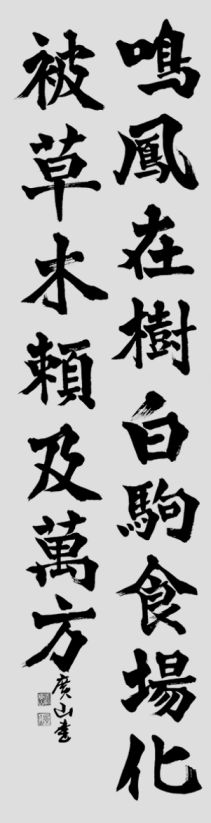 鳴鳳在樹白駒食場化
被草木賴及萬方
廣山書